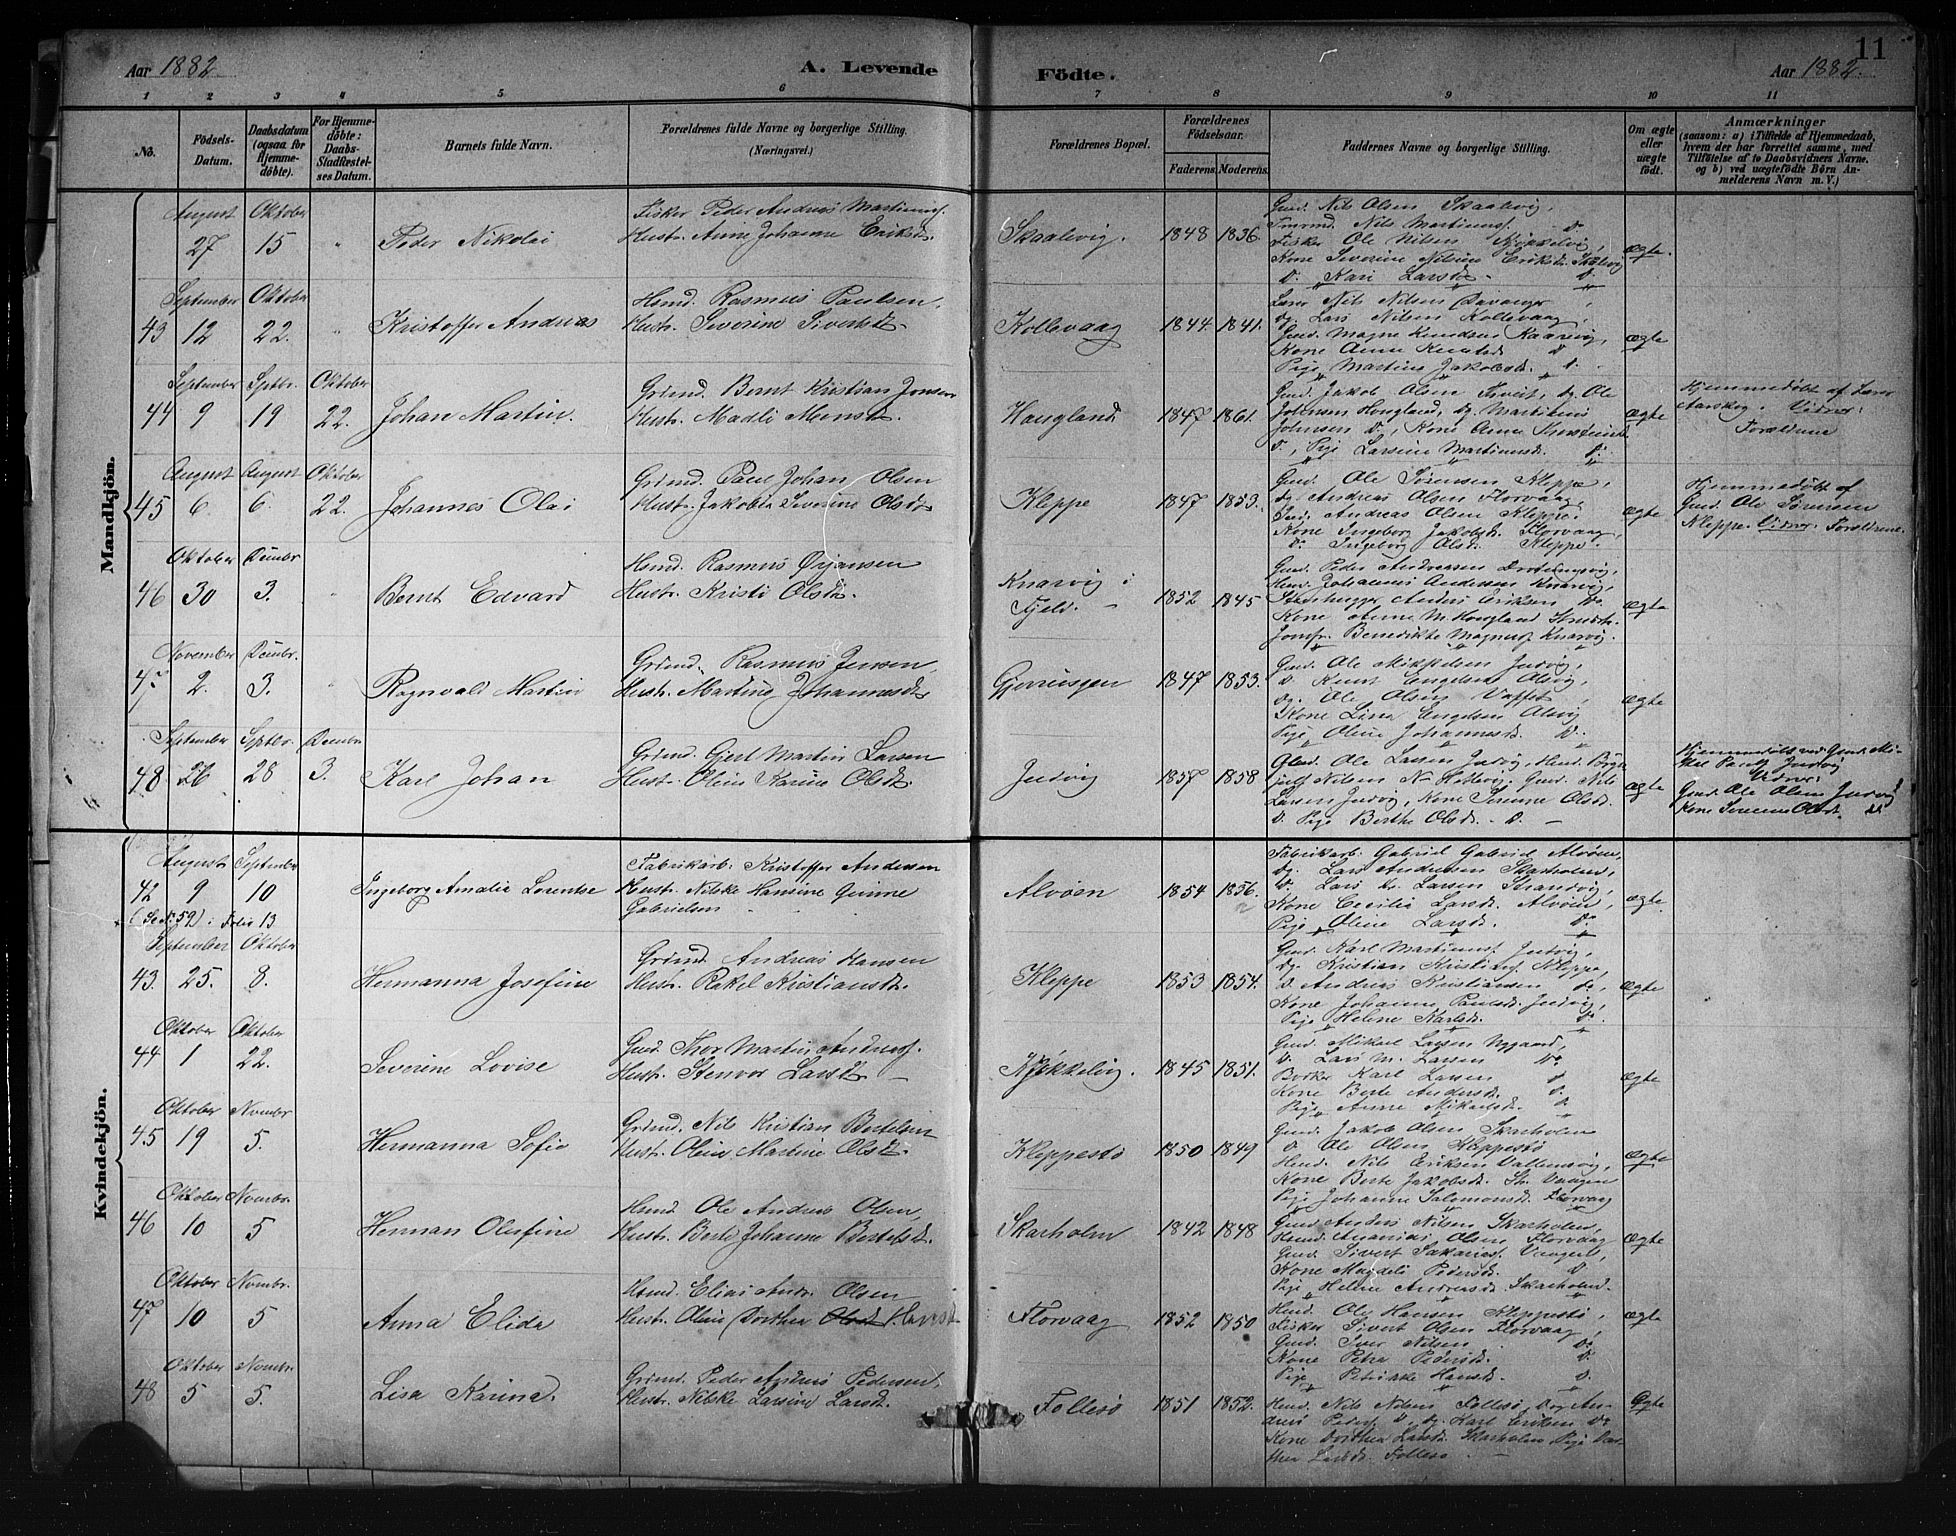 Aar 1882.
A. Levende
Födte.
Aar 1882.
11
1 2 3 4 5 6 7 8 9 10 11
No.
Födsels-Datum.
Daabsdatum (ogsaa for Hjemmedöbte).
For Hjemmedöbte: Daabs-Stadfæstelses Datum.
Barnets fulde Navn.
Forældrenes fulde Navne og borgerlige Stilling.
(Næringsvei.)
Forældrenes Bopæl.
Forældrenes Födselsaar.
Faderens. Moderens.
Faddernes Navne og borgerlige Stilling.
Om ægte eller uægte födt.
Anmærkninger
(saasom: a) i Tilfælde af Hjemmedaab, hvem der har forrettet samme, med Tilföielse af to Daabsvidners Navne. og b) ved uægtefödte Börn Anmelderens Navn m. V.)
Mandkjön.
August Oktober
27 15 " Peder Nikolai
Fisker Peder Andreas Martinusf.
Hustr. Anne Johanne Eriksd.
Skaalvig. 1848 1836.
Gmd. Nils Olsen Skaalvig,
Tmrmd. Nils Martinusf. D.
Fisker Ole Nilsen Kjökkelvig,
Kone Severine Nilsine Eriksd. Skaalvig
D. Kari Larsd. D.
ægte.
September Oktober
43 12 22. " Kristoffer Andreas
Hsmd. Rasmus Paulsen,
Hustr. Severine Sivertsd.
Kollevaag 1844. 1841.
Nils Nilsen Davanger,
Lars Nilsen Kollevaag,
Gmd. Magne Knudsen Kaarvig,
Kone Anna Knutsd. D
Pige Martine Jakobsd. D.
ægte
September Sptbr. Oktober
44 9 19 22. Johan Martin.
Grbmd. Bernt Kristian Jonsen
Hustr. Madli Monsd.
Haugland 1847 1861.
Gmd. Jakob Olsen Tveit, Ug. Ole
Johnsen Hougland, Ug. Martinus
Johnsen D., Kone Anna
D., Pige Larsine Martinusd. D.
ægte
Hjemmedöbt af Lærer
Aarskog. Vidner:
Forældrene
August August Oktober
45 6. 6. 22. Johannes Olai
Grbmd. Paul Johan Olsen
Hustr. Jakobia Severine Olsd.
Kleppe 1847 1853.
Gmd. Ole Sörensen Kleppe,
Ug. Andreas Olsen Florvaag,
Andreas Olsen Kleppe.
Kone Ingeborg Jakobsd. Florvaag,
D. Ingeborg Olsd. Kleppe.
ægte
Hjemmedöbt af
Gmd. Ole Sörensen
Kleppe. Vidner: Forældrene.
Oktober Dcmbr
46 30 3. " Bernt Edvard
Hsmd. Rasmus Örjansen
Hustr. Kristi Olsd.
Knarvig i
Fjeld. 1852 1845
Gmd. Peder Andreassen
Hmd. Johannes Andersen Knarvig,
Stenhugger Anders Eriksen Do.
Kone Anne M. Hougland
Jomfr. Benedikte Magnusd. Knarvig.
ægte
November Dcmbr.
47 2. 3. Ragnvald Martin
Grbmd. Rasmus Jensen,
Hustr. Martine Johannesd.
1847 1853.
Gmd. Ole Mikkelsen Judvig,
D. Knut Engelsen Alvig,
Ug. Ole Olsen
Kone Lina Engelsen Alvig
Pige Oline Johannesd. D.
ægte
September Sptbr. Dcmbr
48 26 28 3. Karl Johan
Grbmd. Gjert Martin Larsen
Hustr. Oline Karine Olsd.
Judvig 1857 1858
Gbmd. Ole Larsen Judvig, Hmd.
Nilsen N. Gmd. Nils
Larsen Judvig, Kone Serenne Olsd.
D. Pige Berthe Olsd. D.
ægte
Hjemmedöbt ved Gmd. Mi-
kel Paulf. Judvig
Vidner:
Gmd. Ole Olsen Judvig
Kone Serenne Olsd. D.
Kvindekjön.
August September
42 9 10 Ingeborg Amalia Lorentse
(Se No. 59) i Folio 13
Fabrikarb. Kristoffer Andersen
Hustr. Nilske Hansine
Gabrielsen
Alvöen 1854 1856.
Fabrikarb. Gabriel Gabriel Alvöen,
Ug. Lars Andersen Skarholm,
D. Lars Kr. Larsen Strandvig,
Kone Cecilia Larsd. Alvöen,
Pige Oline Larsd. D.
ægte.
September Oktober
43. 25. 8. Hermanna Josefine
Grbmd. Andreas Hansen
Hustr. Rakel Kristiansd.
Kleppe 1853 1854.
Gmd. Karl Martinusf. Judvig,
Ug. Kristian Kristiansf. Kleppe,
D. Andreas Kristiansen D.,
Kone Johanne Paulsd. Judvig,
Pige Helene Karlsd. D.
ægte
Oktober Oktober
44 1 22. Severine Lovise
Gmd. Thor Martin Andreasf.
Hustr. Stenvor Larsd.
Kjökkelvig. 1845 1851.
Gmd. Mikael Larsen Nygaard,
D. Lars M. Larsen Do.
Karl Larsen D
Kone Berte Andersd. D.
Pige Anne Mikaelsd. D.
ægte
Oktober Novmbr
45 19 5. Hermanna Sofie
Grbmd. Nils Kristian Bertelsen
Hustr. Oline Martine Olsd.
Kleppestö 1850 1849
Gmd. Jakob Olsen Skarholm
D. Ole Olsen Kleppestö
Hmd. Nils Eriksen
Kone Berte Jakobsd. St. Vaagen
Pige Johanne Salomonsd. Florvaag
ægte
Oktober Novmbr.
46 10 5 Herman Olufine
Hsmd. Ole Andreas Olsen,
Hustr. Berte Johanne Bertelsd.
Skarholm 1842 1848
Gmd. Anders Nilsen Skarholm,
Hsmd. Ananias Olsen Florvaag
Gmd. Sivert Sakariasf.
Kone Magdeli Pedersd. D.
Pige Helene Andreasd. Skarholmd.
ægte
Oktober Novmbr.
47 10 5 Anna Elida
Hsmd. Elias Andr. Olsen
Hustr. Oline Dorthea Olsd. Hansd.
Florvaag 1852 1850
Hmd. Ole Hansen Kleppestö,
Fisker Sivert Olsen Florvaag,
Gmd. Iver Nilsen D.
Kone Petra Pedersd. D.
Pige Petrikke Hansd. D.
ægte
Oktober Novmbr.
48 5 5. Lisa Karina.
Grbmd. Peder Andreas Pedersen,
Hustr. Nilske Larsine Larsd.
Follesö 1851 1852.
Hmd. Nils Nilsen Follesö, Ug. An-
dreas Pedersf. D., Ug. Karl Eriksen Do
Kone Dorthea Larsd. Skarholm Pige Dor-
thea Larsd. Follesö
Ægte